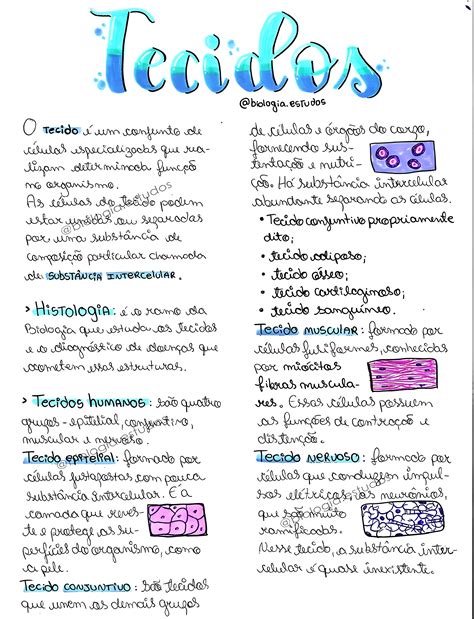 Tecidos
@biologia.estudos
O TECIDO é um conjunto de
células especializadas que rea-
lizam determinada função
no organismo.
As células do tecido podem
estar unidas ou separadas
por uma substância de
composição particular chamada
de SUBSTÂNCIA INTERCELULAR.
> HISTOLOGIA: é o ramo da
Biologia que estuda os tecidos
e o diagnóstico de doenças que
acometem essas estruturas.
> TECIDOS HUMANOS: são quatro
grupos - epitelial, conjuntivo,
muscular e nervoso.
TECIDO EPITELIAL: formado por
células justapostas com pouca
substância intercelular. É a
camada que reves-
te e protege as su-
perfícies do organismo, como
a pele.
TECIDO CONJUNTIVO: são tecidos
que unem os demais grupos
de células e órgãos do corpo,
fornecendo sus-
tentação e nutri-
ção. Há substância intercelular
abundante separando as células.
• Tecido conjuntivo propriamente
dito;
• tecido adiposo;
• tecido ósseo;
• tecido cartilaginoso;
• tecido sanguíneo.
TECIDO MUSCULAR: formado por
células fusiformes, conhecidas
por miócitos
fibras muscula-
res. Essas células possuem
as funções de contração e
distenção.
TECIDO NERVOSO: formado por
células que conduzem impul-
sos elétricos, os neurônios,
que são muito
ramificados.
Nesse tecido, a substância inter-
celular é quase inexistente.
@biologia.estudos
@biologia.estudos
@biologia.estudos